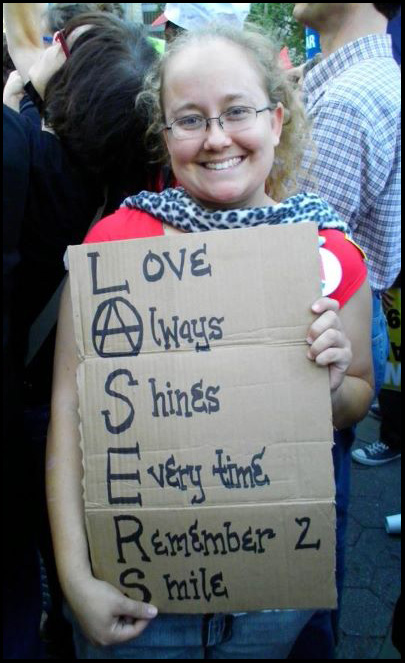 LOVE
Always
Shines
Every time
Remember 2
Smile